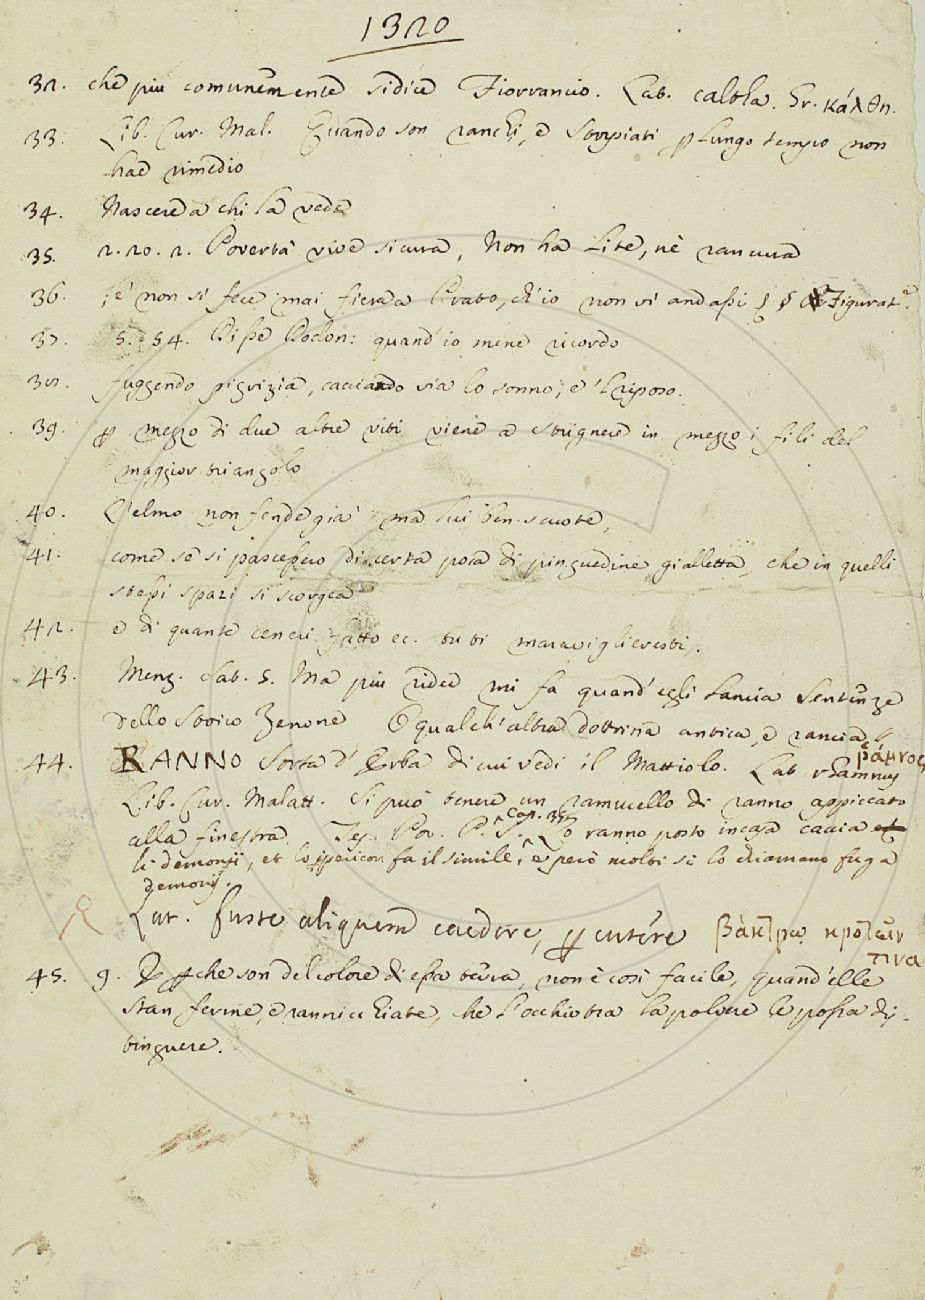 1320
32. che più comunemente si dice Fiorrancio. Lat. caltha. Gr. κάλθη.
33. Lib. Cur. Mal. Quando son ranchi, e storpiati p lungo tempo non
hae rimedio
34. Nascere a chi la vede
35. 2. 20. 2. Povertà vive sicura, Non ha lite, nè rancura
36. e' non si fece mai fiera a Prato, ch'io non vi andassi § § Figurat.e
37. S. 54. Disse Dodon: quand'io mene ricordo
38. fuggendo pigrizia, cacciando via lo sonno, e 'l riposo.
39. p mezzo di due altre viti viene a strignere in mezzo i fili del
maggior triangolo
40. L'elmo non fende già ma lui ben scuote,
41. come se si pascessero di certa poca di pinguedine gialletta, che in quelli
stessi spazi si scorgea
42. e di quante cenci fatto ec. tu ti maraviglieresti.
43. Menz. sat. 5. Ma più ridere mi fa quand'egli lancia Sentenze
dello stoico Zenone O qualch'altra dottrina antica, e rancia
44. RANNO Sorta d'Erba di cui vedi il Mattiolo. Lat. rhamnus ῥάμνος
Lib. Cur. Malatt. Si può tenere un ramucello di ranno appiccato
alla finestra. Tes. Pov. P. S. Cap. Lo ranno posto in casa cacia
li demonij, et lo ipericon fa il simile, e però molti si lo chiamano fuga
demonij.
Lat. fuste aliquem caedere, pcutere βάκτρῳ κροτεῖν
τινα
45. 9. p che son del colore di essa terra, non è così facile, quand'elle
stan ferme, e rannicchiate, che l'occhio tra la polvere le possa dis-
tinguere.